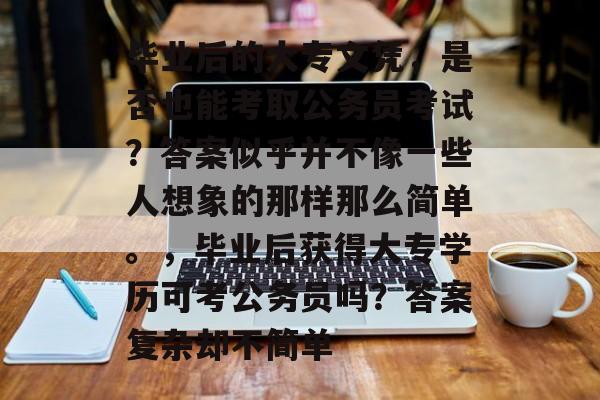 毕业后的大专文凭，是
否也能考取公务员考试
？答案似乎并不像一些
人想象的那样那么简单
。，毕业后获得大专学
历可考公务员吗？答案
复杂却不简单